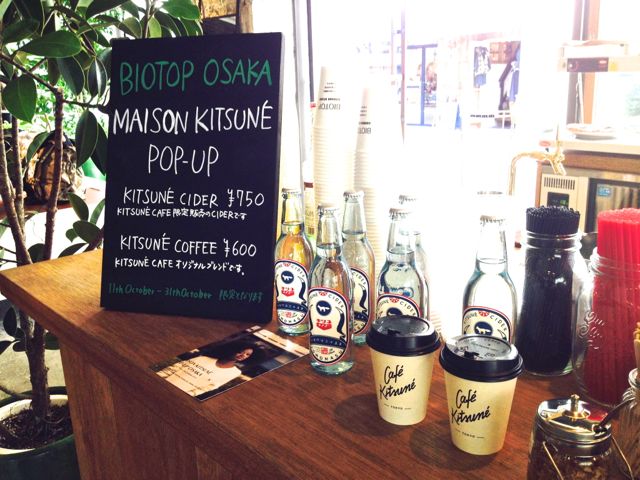 BIOTOP OSAKA
MAISON KITSUNÉ
POP-UP
KITSUNÉ CIDER ¥750
KITSUNÉ CAFE 限定販売のCIDERです
KITSUNÉ COFFEE ¥600
KITSUNÉ CAFE オリジナルブレンドです。
11th October - 31th October 限定となります
KITSUNÉ CIDER
LIMONADE
Café
Kitsuné
TOKYO
Café
Kitsuné
TOKYO
BIOTOP